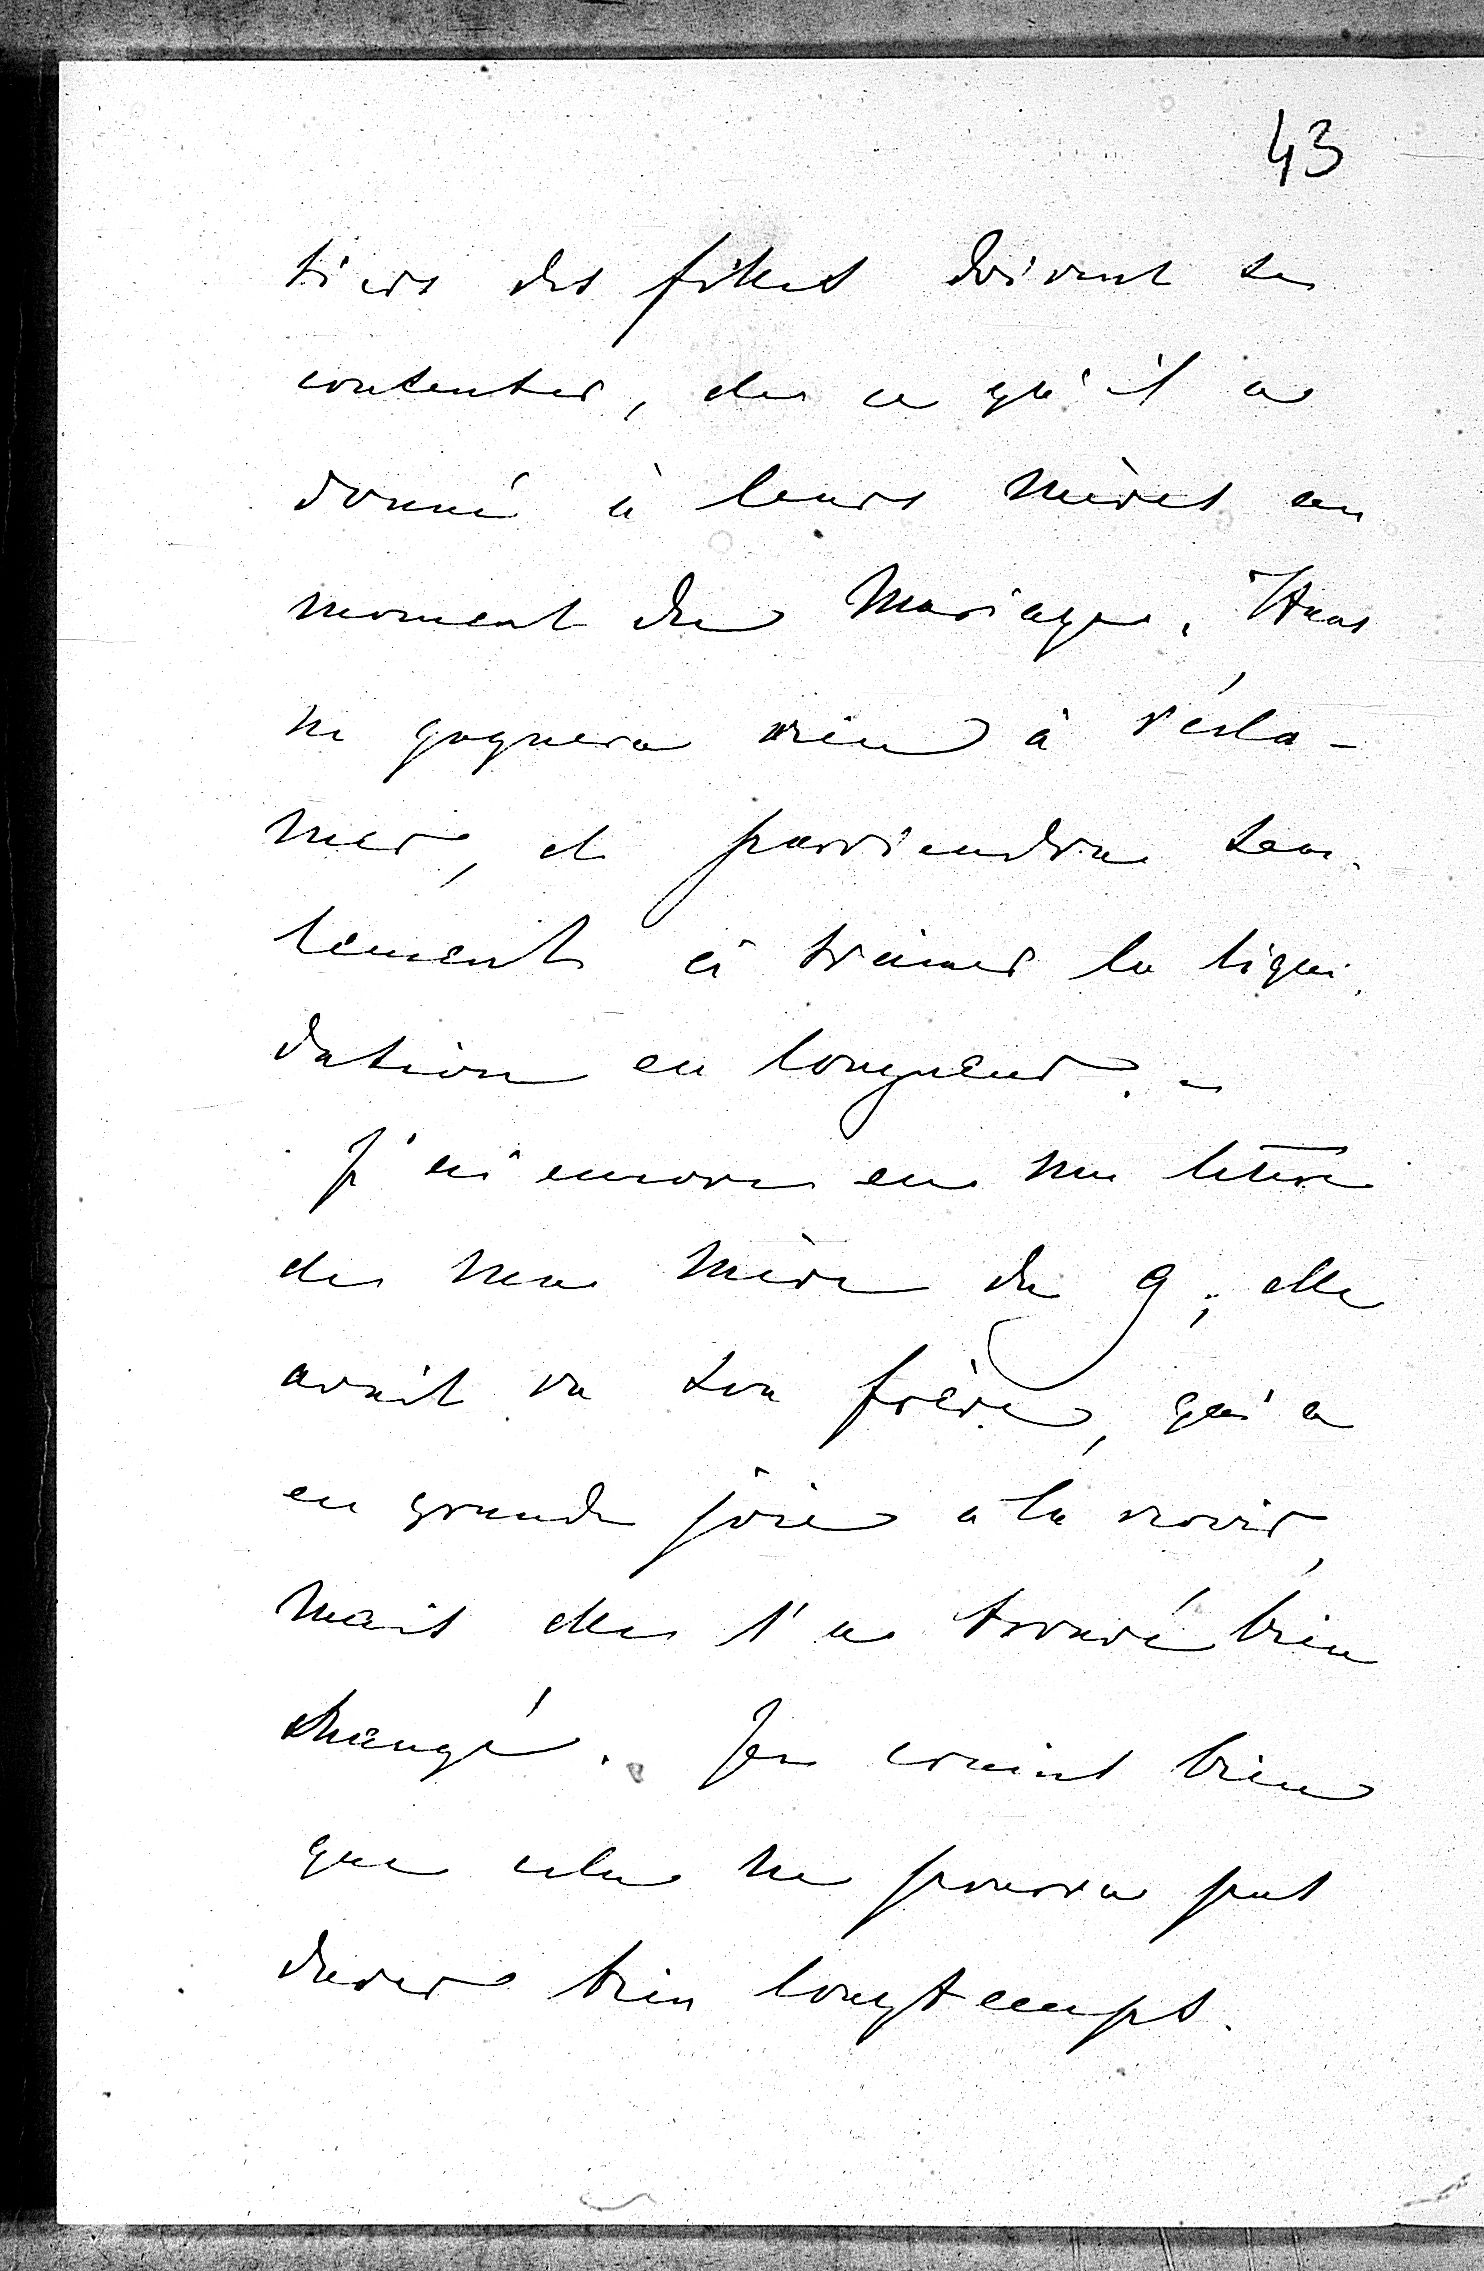 43
tiers des filles doivent se
contenter, de ce qu'il a
donné à leurs mères au
moment du Mariage. Haas
ne gagnera rien à récla-
mer, et parviendra seu-
lement à trainer la liqui-
dation en longueur. -
J'ai encore eu une lettre
de ma mère du 9; elle
avait vu son frère, qui a
eu grande joie a la revoir,
mais elle l'a trouvé bien
changé. Je crains bien
que cela ne pourra pas
durer bien longtemps.